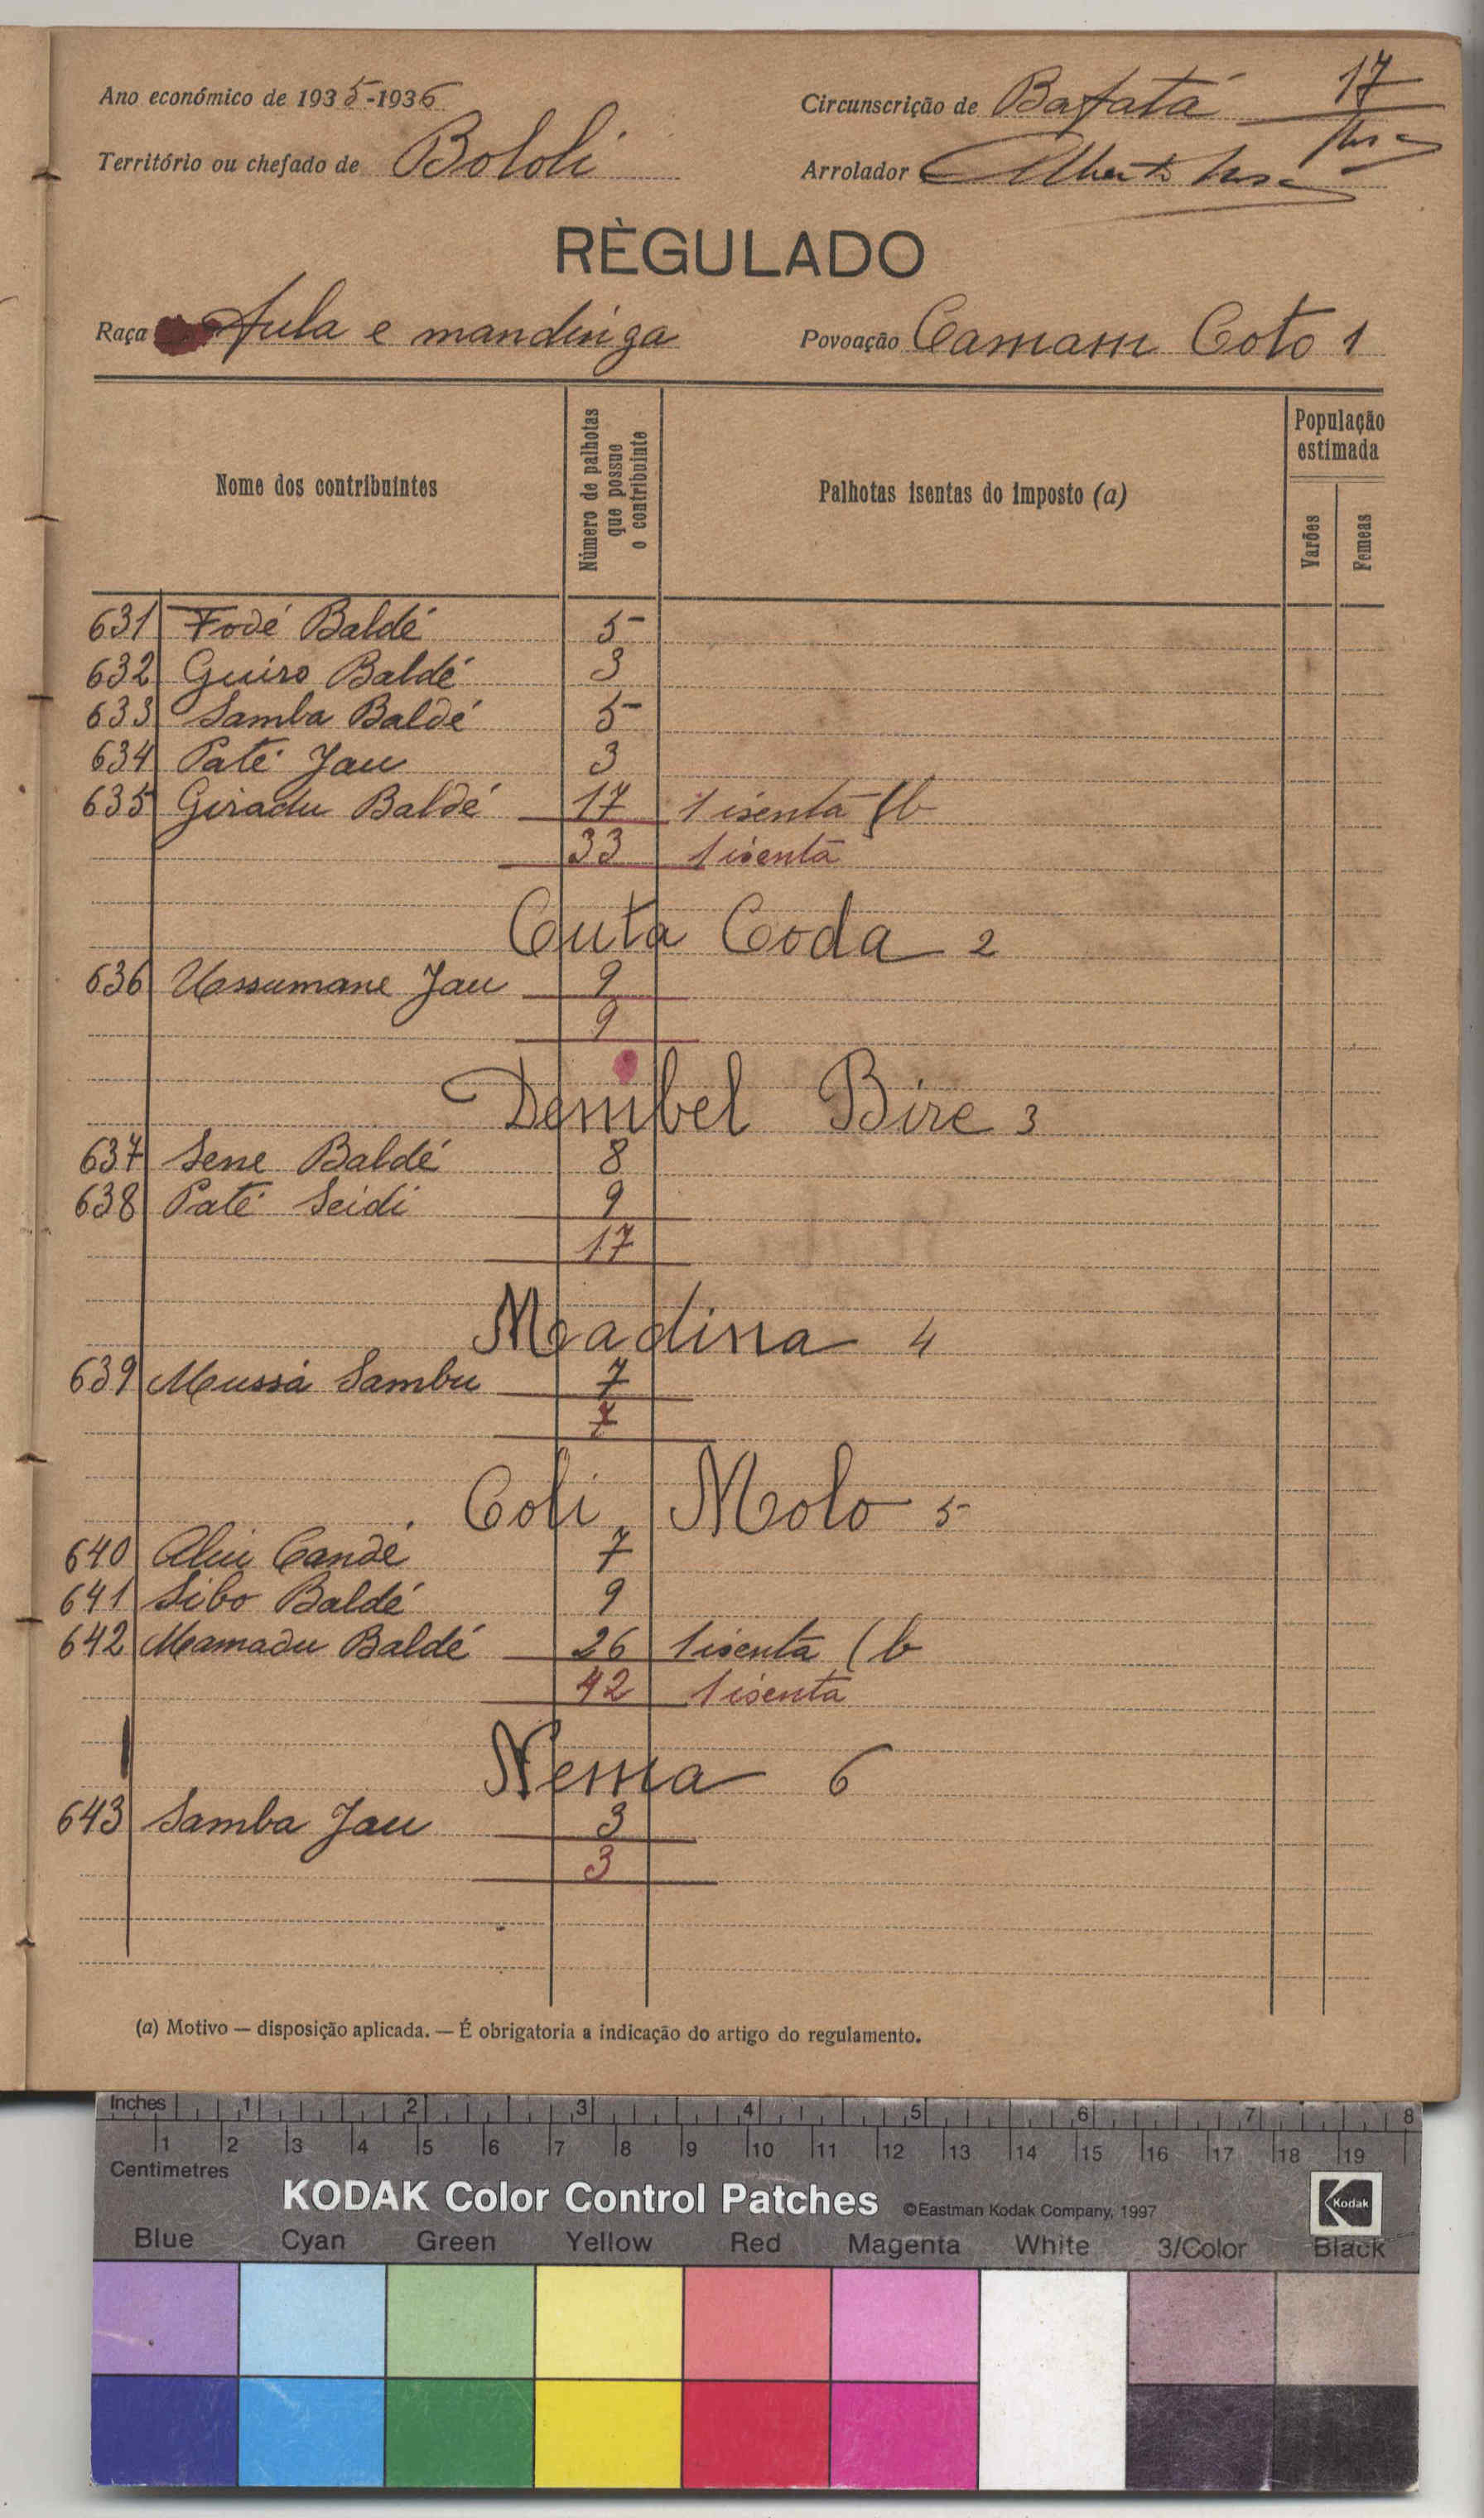 Ano económico de 1935-1936
Circunscrição de Bafatá 17
Território ou chefado de Bololi
Arrolador Alberto
RÈGULADO
Raça fula e mandinga
Povoação Camam Coto 1
Nome dos contribuintes
Número de palhotas que possue o contribuinte
Palhotas isentas do imposto (a)
População estimada
Varões
Femeas
631 Fodé Baldé 5
632 Guiro Baldé 3
633 Samba Baldé 5
634 Paté Jau 3
635 Giradu Baldé 17 1 isenta (b
33 1 isenta
Cuta Coda 2
636 Ussumane Jau 9
9
Dembel Bire 3
637 Sene Baldé 8
638 Paté Seidi 9
17
Madina 4
639 Mussá Sambu 7
7
Coli Molo 5
640 Aliu Candé 7
641 Sibo Baldé 9
642 Mamadu Baldé 26 1 isenta (b
42 1 isenta
Nema 6
643 Samba Jau 3
3
(a) Motivo — disposição aplicada. — É obrigatoria a indicação do artigo do regulamento.
Inches 1 2 3 4 5 6 7 8
1 2 3 4 5 6 7 8 9 10 11 12 13 14 15 16 17 18 19
Centimetres
KODAK Color Control Patches ©Eastman Kodak Company, 1997 Kodak
Blue Cyan Green Yellow Red Magenta White 3/Color Black